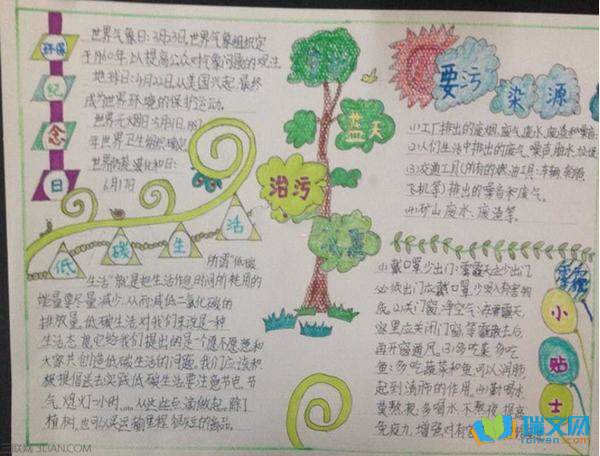 环保
纪
念
日
世界气象日:3月23日,世界气象组织定
于1960年,以提高公众对气象问题的关注。
地球日:4月22日,从美国兴起,最终
成为世界环境的保护运动。
世界无烟日:5月31日,
年世界卫生组织
世界防荒漠化和日:
6月17日
低碳生活
所谓"低碳
生活"就是把生活作息时间所耗用的
能量要尽量减少,从而减低二氧化碳的
排放量。低碳生活对我们来说是一种
生活态
大家共创造低碳生活的问题。我们应该积
极提倡去实践低碳生活,要注意节电、节
气、熄灯一小时……从这些点滴做起。除了
植树,也可以
蓝天
治污
要污
染源
(1)工厂排出的废烟、废气、废水、废渣和噪音
(2)人们生活中排出的废气、噪音、脏水、垃圾
(3)交通工具(所有的燃油工具:车辆、轮船
飞机等)排出的噪音和废气。
(4)矿山废水、废渣等。
小
贴
士
(1)戴口罩,少出门:雾霾天必少出门
必须出门应戴口罩,少吸入有害物
质。
应关闭门窗,等雾霾散去后
再开窗通风。(3)多吃菜多吃
鱼:多吃蔬菜和鱼可以消肺
起到清肺的作用。(4)勤喝水
莫熬夜:多喝水,不熬夜,提高
免疫力,增强
三联网 3LIAN.COM
瑞文网
ruiwen.com